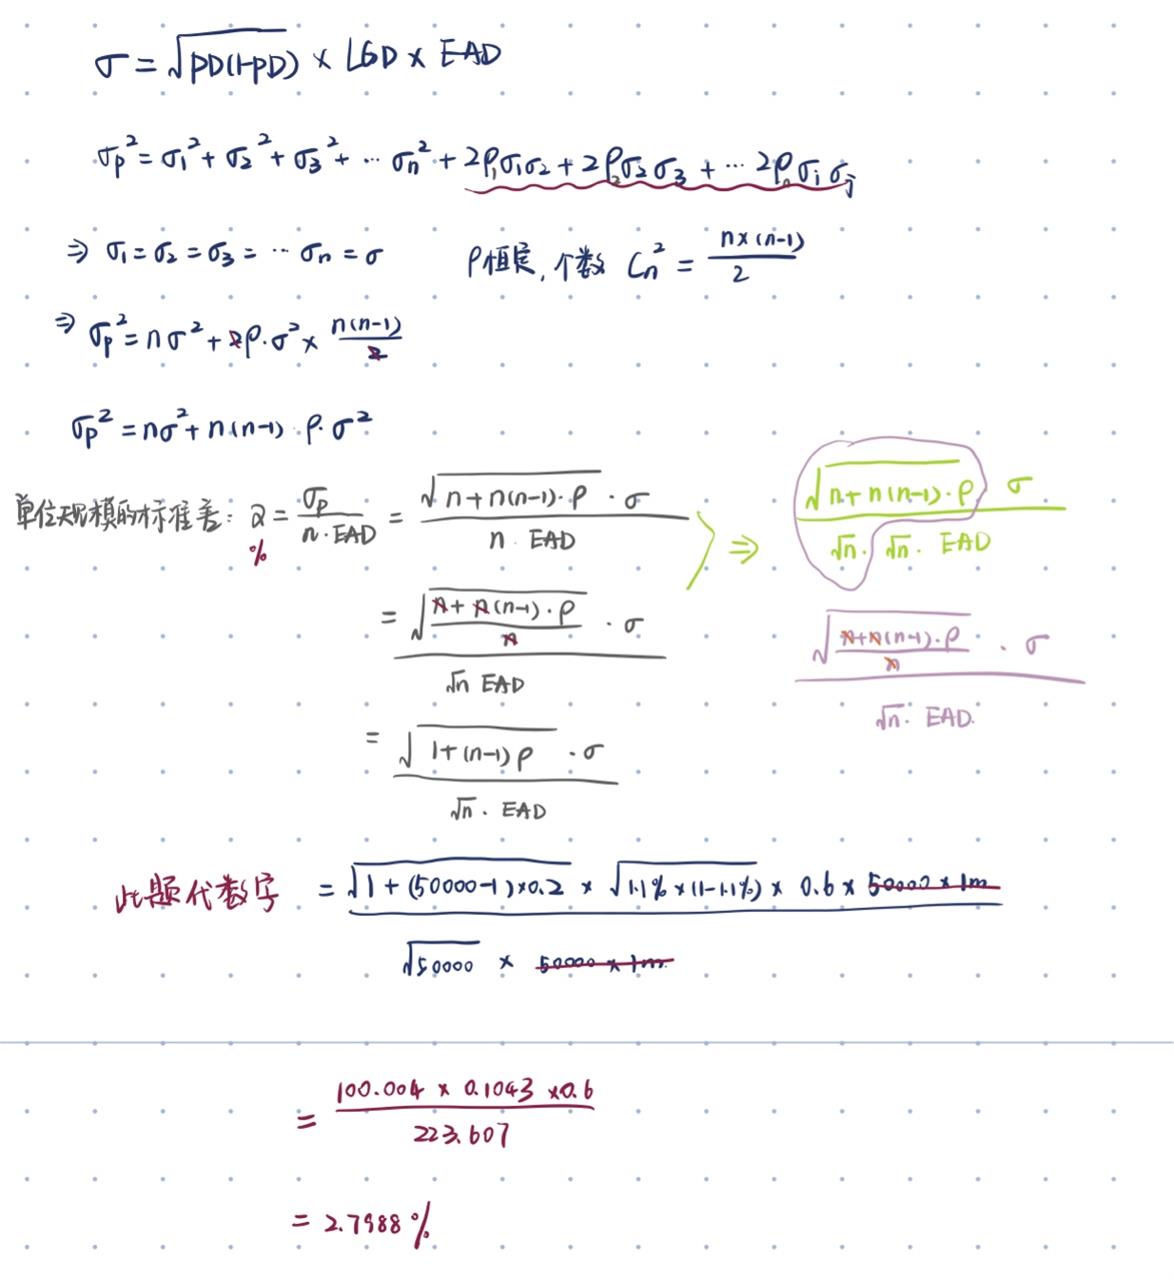 σ = √PD(1-PD) × LGD × EAD
σp² = σ1² + σ2² + σ3² + ··· σn² + 2ρ1σ1σ2 + 2ρ2σ2σ3 + ··· 2ρnσiσj
⇒ σ1 = σ2 = σ3 = ··· σn = σ ρ恒定, 个数 Cn² = n×(n-1)/2
⇒ σp² = nσ² + 2ρ·σ² × n(n-1)/2
σp² = nσ² + n(n-1)·ρ·σ²
单位规模的标准差: α = σp/(n·EAD) = √(n+n(n-1)·ρ)·σ / (n·EAD) ⇒ √(n+n(n-1)·ρ) σ / (√n·√n·EAD)
%
= √((n+n(n-1)·ρ)/n)·σ / (√n EAD) √((n+n(n-1)·ρ)/n)·σ / (√n·EAD)
= √(1+(n-1)ρ)·σ / (√n·EAD)
此题代数字 = √(1+(50000-1)×0.2) × √(1.1%×(1-1.1%)) × 0.6 × 50000×1m / (√50000 × 50000×1m)
= 100.004 × 0.1043 × 0.6 / 223.607
= 2.7988%